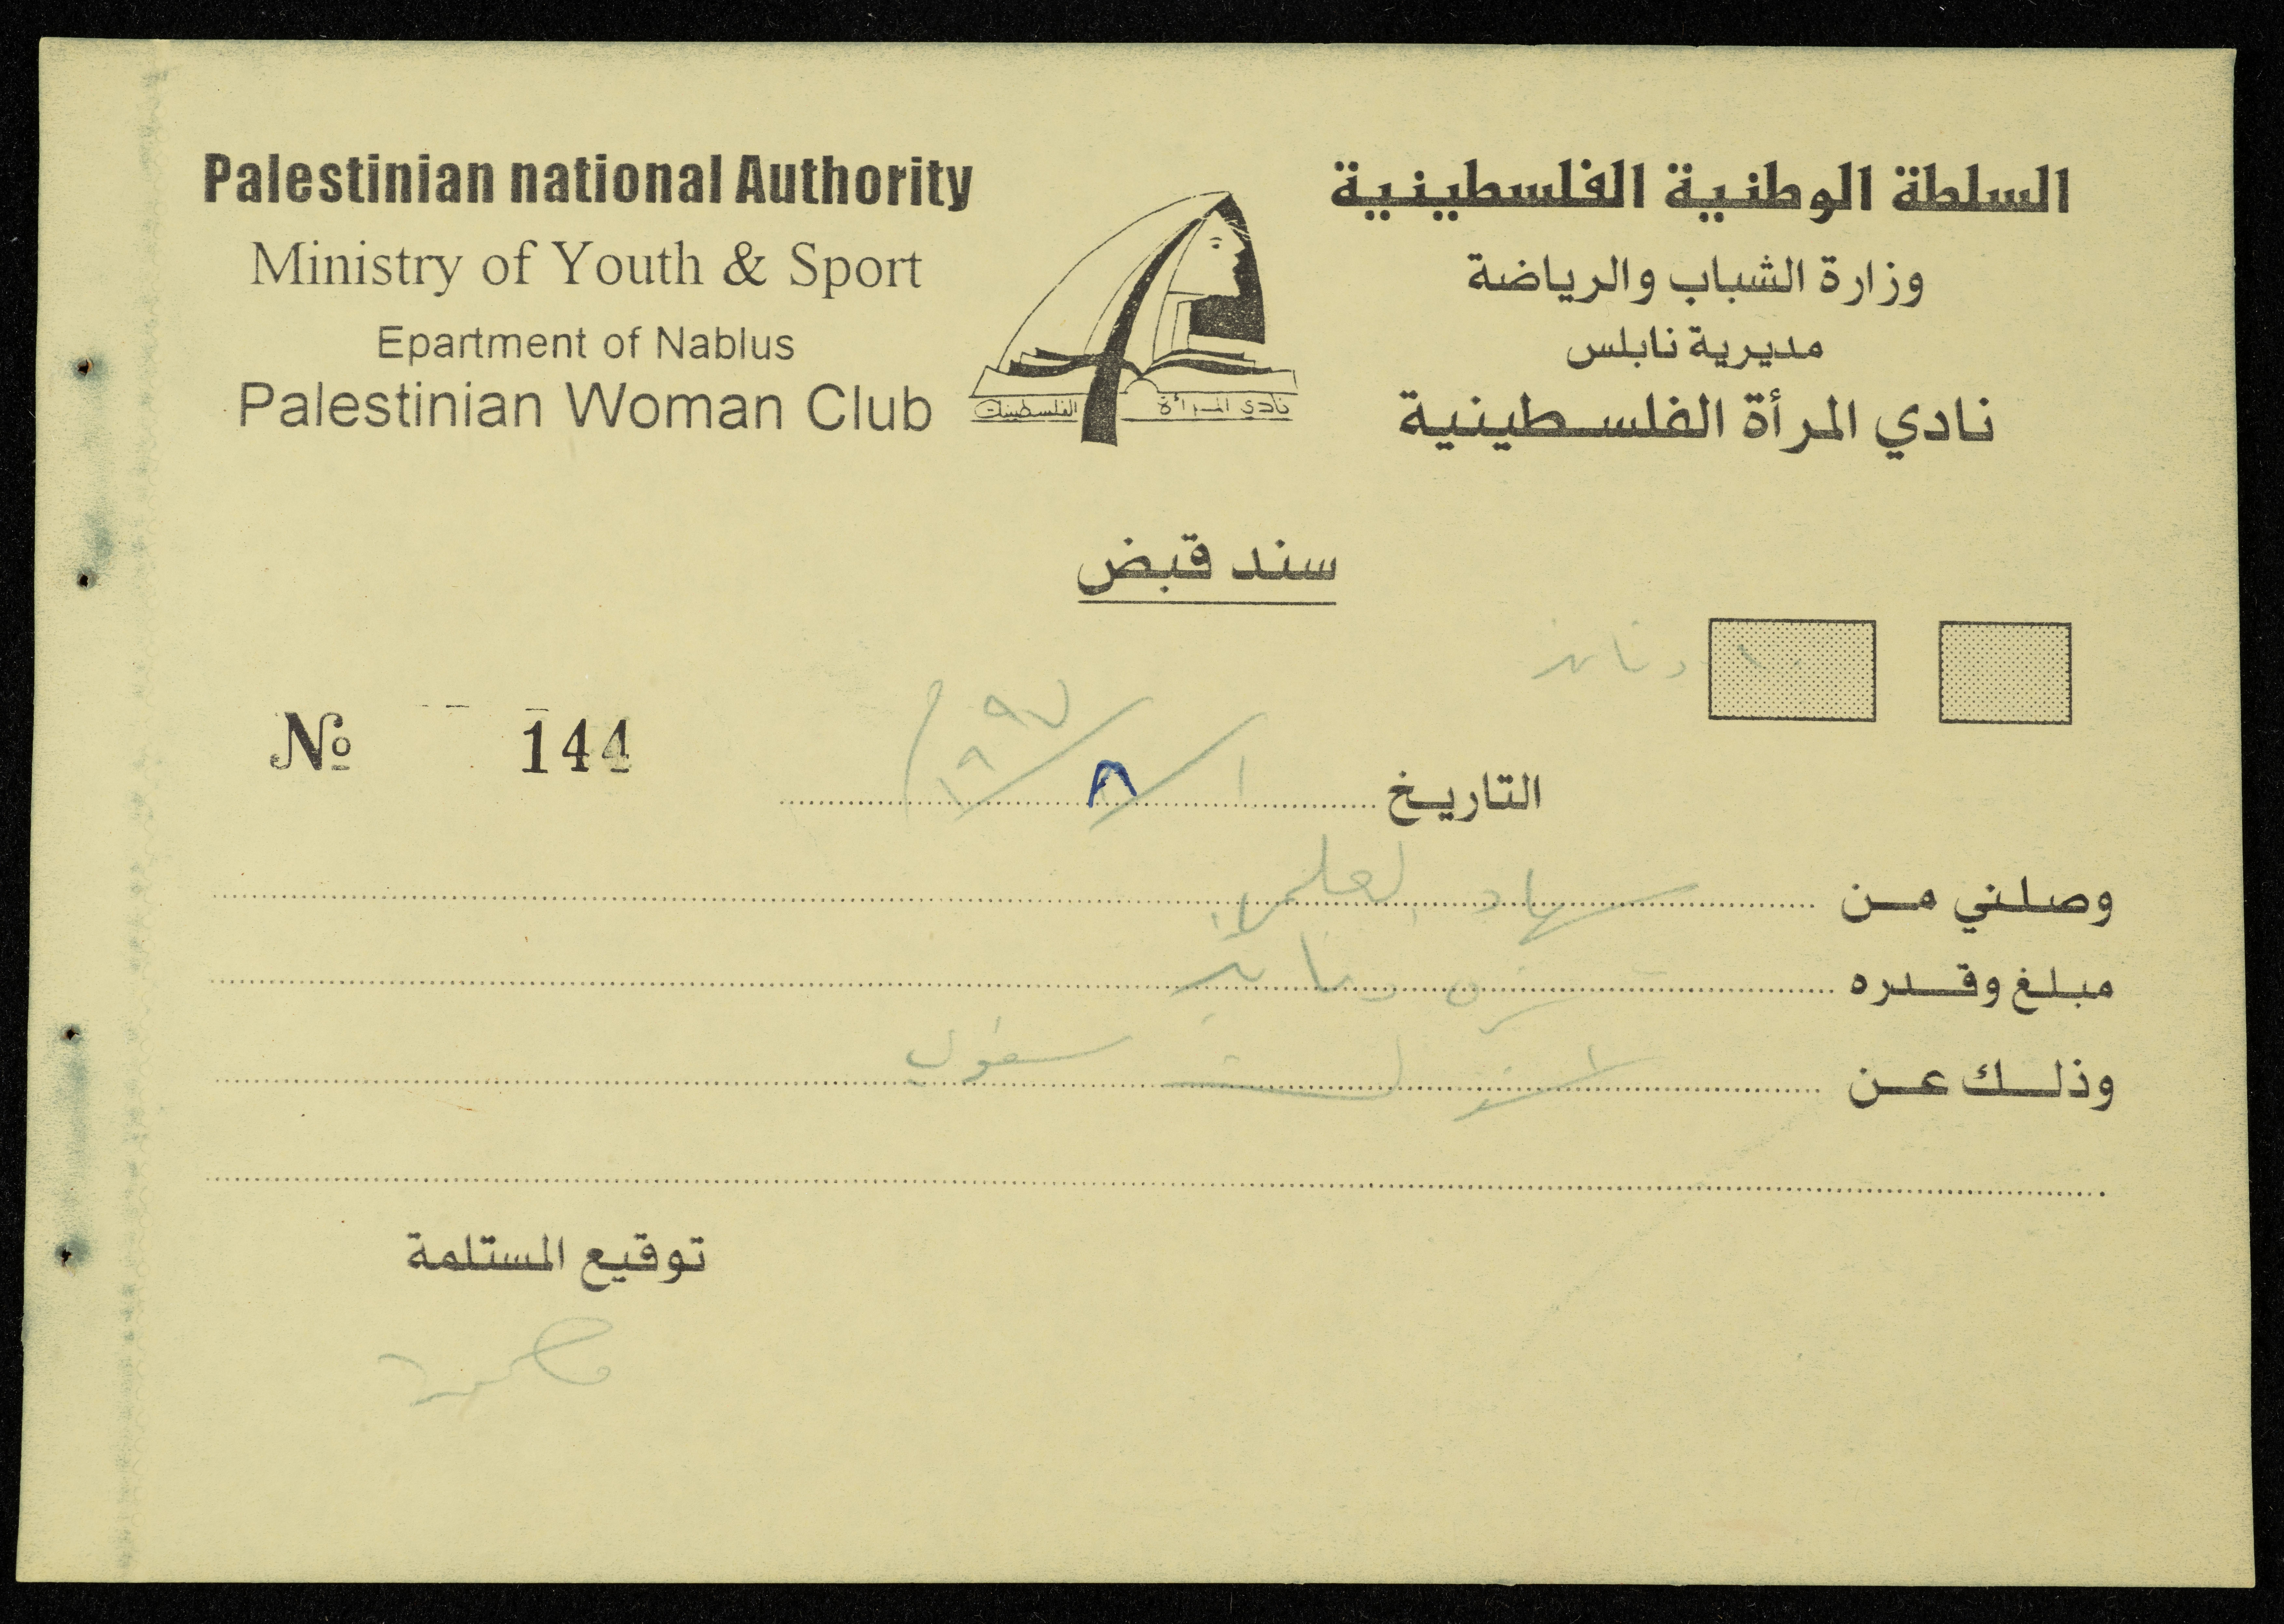 Palestinian national Authority
Ministry of Youth & Sport
Epartment of Nablus
Palestinian Woman Club
السلطة الوطنية الفلسطينية
وزارة الشباب والرياضة
مديرية نابلس
نادي المرأة الفلسطينية
نادي المرأة الفلسطينية
سند قبض
١٠ دنانير
№ 144
التاريخ ١/٨/١٩٩٧م
وصلني من سهاد
مبلغ وقدره دنانير
وذلك عن
توقيع المستلمة